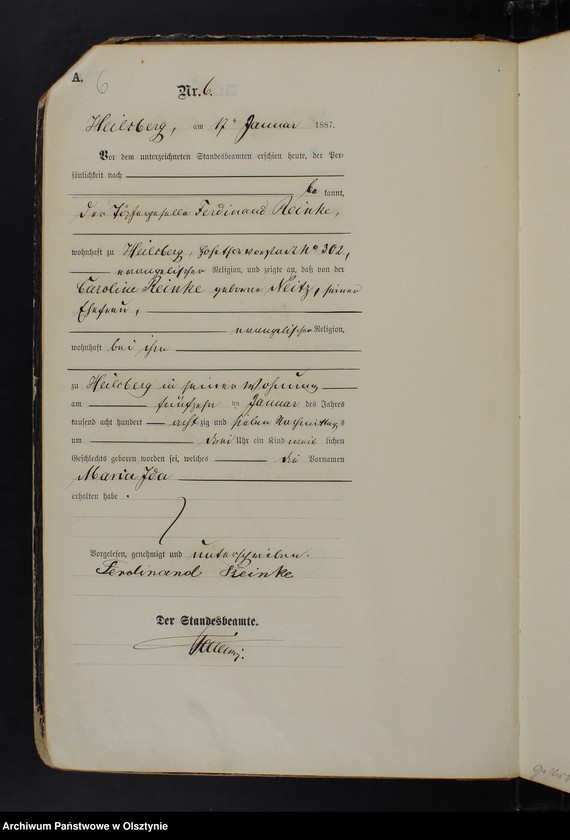 A.
6
Nr. 6.
Heilsberg, am 17ten Januar 1887.
Vor dem unterzeichneten Standesbeamten erschien heute, der Per-
sönlichkeit nach
be kannt,
der Töpfergeselle Ferdinand Reinke,
wohnhaft zu Heilsberg, vorstadt No 302,
evangelischer Religion, und zeigte an, daß von der
Carolina Reinke geborene Neitz, seiner
Ehefrau,
evangelischer Religion,
wohnhaft bei ihm
zu Heilsberg in seiner Wohnung
am fünfzehn ten Januar des Jahres
tausend acht hundert acht zig und sieben Nachmittags
um drei Uhr ein Kind weib lichen
Geschlechts geboren worden sei, welches die Vornamen
Maria Ida
erhalten habe.
Vorgelesen, genehmigt und unterschrieben.
Ferdinand Reinke
Der Standesbeamte.
Archiwum Państwowe w Olsztynie